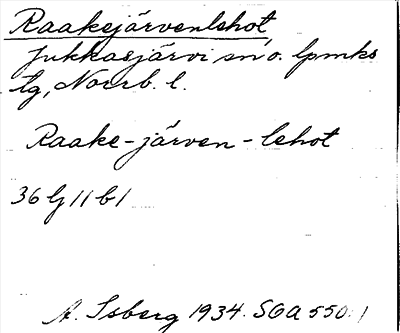 Raakejärvenlehot
Jukkasjärvi sn o. lpmks
tg, Norrb. l.
Raake-järven-lehot
36 lj 11 b 1
A. Isberg 1934. SOA 550: 1